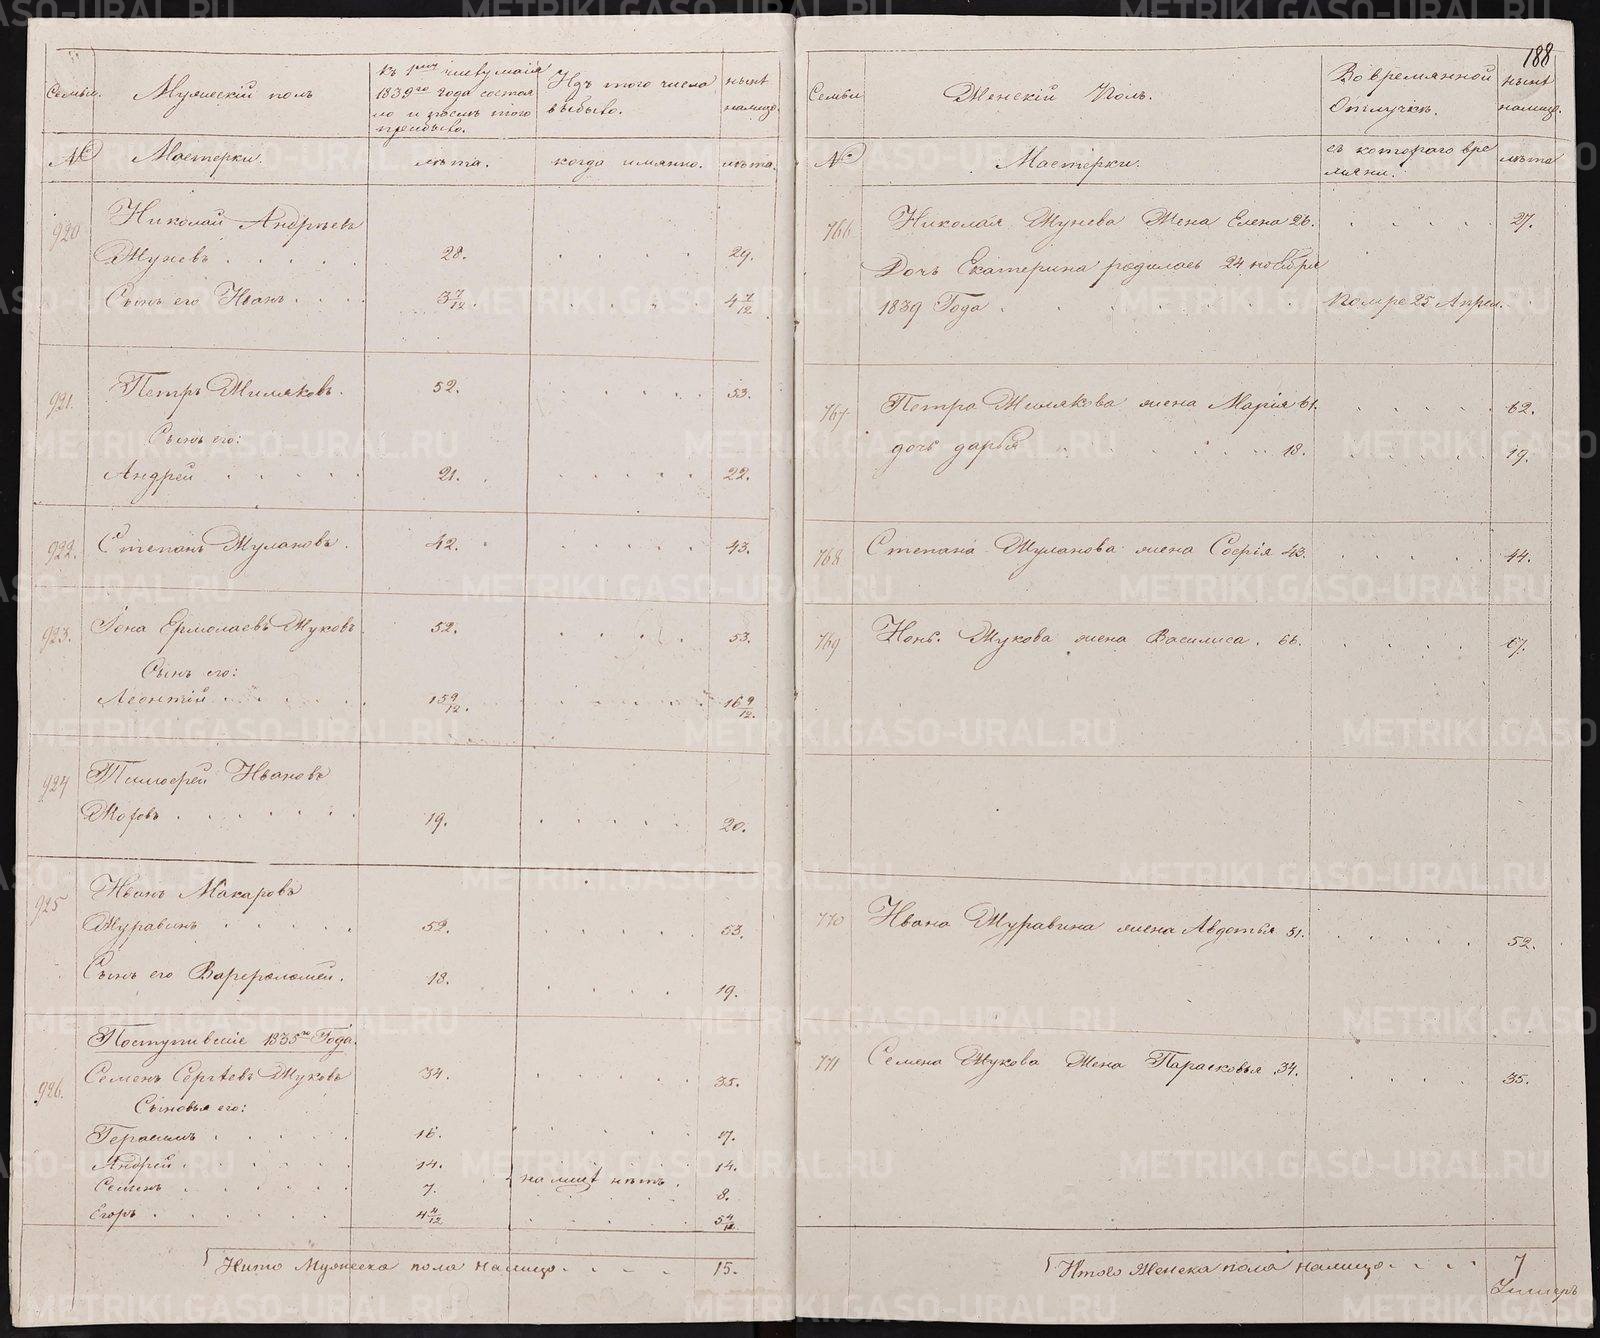 188
Семьи.
Мужескій полъ
къ 1му числу маія
1839го года состоя
ло и послѣ того
прибыло.
Изъ того числа
выбыло.
нынѣ
налицо.
№
Мастерки.
лѣта.
когда имянно.
лѣта.
920
Николай Андрѣевъ
Жуневъ 28. 29.
Сынъ его Иванъ 3 7/12. 4 7/12
921.
Петръ Жиляковъ. 52. 53.
Сынъ его:
Андрей 21. 22.
922.
Степанъ Жулановъ. 42. 43.
923.
Іона Ермолаевъ Жуковъ 52. 53.
Сынъ его:
Леонтій 15 9/12. 16 9/12.
924
Тимофей Ивановъ
19. 20.
925
Иванъ Макаровъ
Журавинъ 52. 53.
Сынъ его Варфоломей. 18. 19.
Поступившіе 1835го Года.
926.
Семенъ Сергѣевъ Жуковъ 34. 35.
Сыновья его:
Герасимъ 16. 17.
Андрей 14. 14.
Семенъ 7. 8.
Егоръ 4 4/12 5 4/12
налицо нѣтъ.
Итого Мужеска пола налицо 15.
Семьи
Женскій Полъ.
Во времянной
Отлучкѣ.
нынѣ
налицо.
№
Мастерки.
съ котораго вре
мяни.
лѣта
766
Николая Жунева Жена Елена 26. 27.
Дочь Екатерина родилась 24 ноября
1839 Года Померла 25 Апрел.
767
Петра Жилякова жена Марія 61. 62.
дочь дарья 18. 19.
768
Степана Жуланова жена Софія 43. 44.
769
Іоны Жукова жена Василиса. 66. 67.
770
Ивана Журавина жена Авдотья 51. 52.
771
Семена Жукова Жена Парасковья 34. 35.
Итого Женска пола налицо 7
METRIKI.GASO-URAL.RU